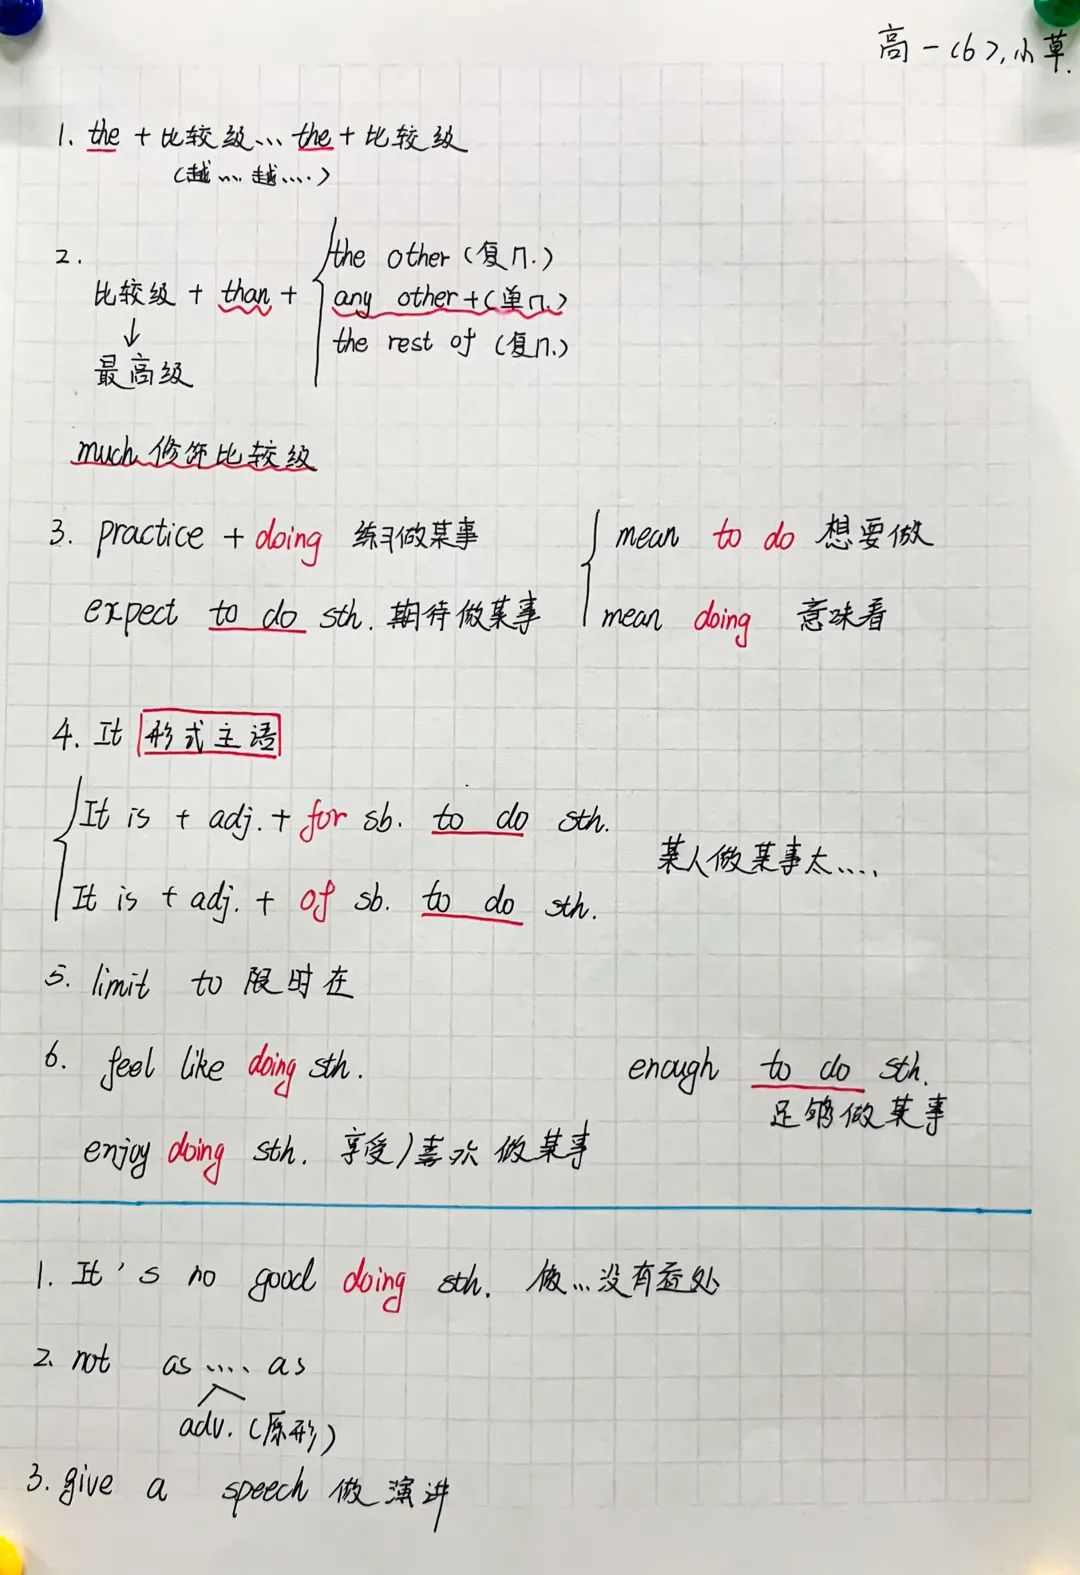 高一(6),小草.
1. the + 比较级... the + 比较级
(越... 越....)
2.
比较级 + than +
the other (复n.)
any other + (单n.)
the rest of (复n.)
↓
最高级
much 修饰比较级
3. practice + doing 练习做某事
expect to do sth. 期待做某事
mean to do 想要做
mean doing 意味着
4. It 形式主语
It is + adj. + for sb. to do sth.
It is + adj. + of sb. to do sth.
某人做某事太....
5. limit to 限时在
6. feel like doing sth.
enjoy doing sth. 享受/喜欢 做某事
enough to do sth.
足够做某事
1. It's no good doing sth. 做...没有益处
2. not as .... as
adv. (原形)
3. give a speech 做演讲